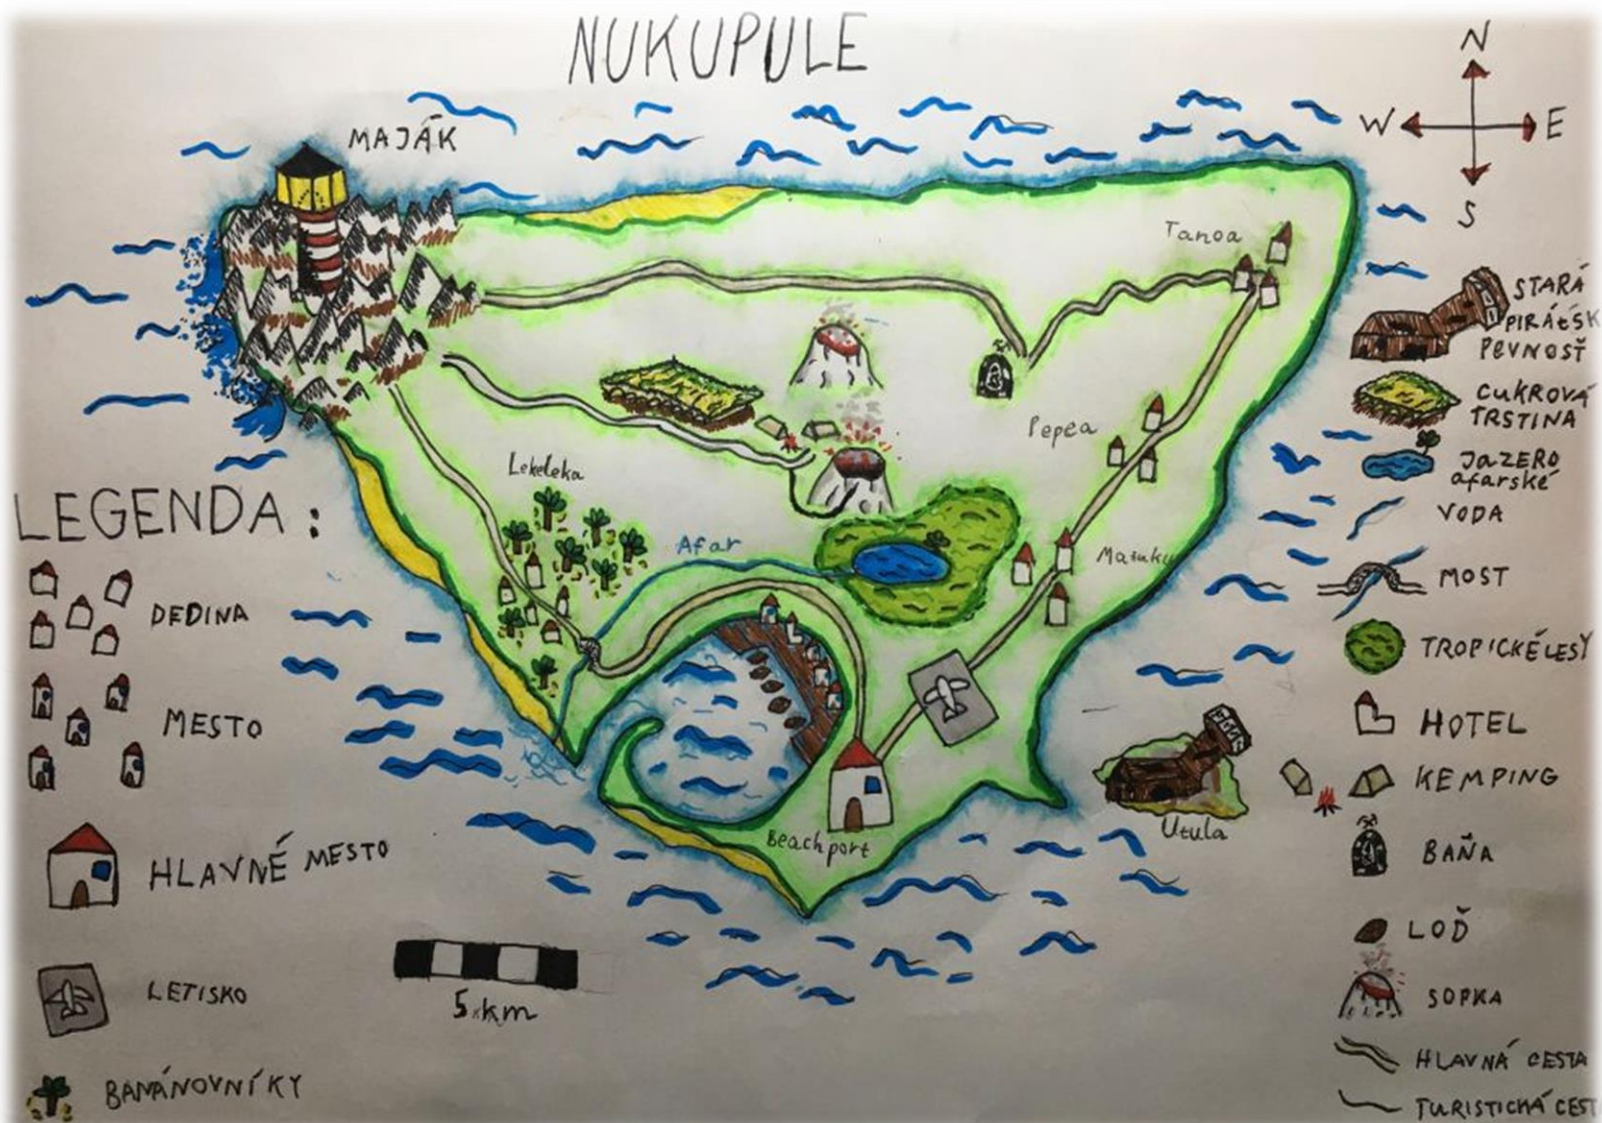 NUKUPULE
MAJÁK
N
W E
S
Tanoa
Pepea
Lekeleka
Afar
Beachport
Utula
5 km
LEGENDA:
DEDINA
MESTO
HLAVNÉ MESTO
LETISKO
BANÁNOVNÍKY
STARÁ
PEVNOSŤ
CUKROVÁ
TRSTINA
JAZERO
afarské
VODA
MOST
TROPICKÉ LESY
HOTEL
KEMPING
BAŇA
LOĎ
SOPKA
HLAVNÁ CESTA
TURISTICKÁ CEST